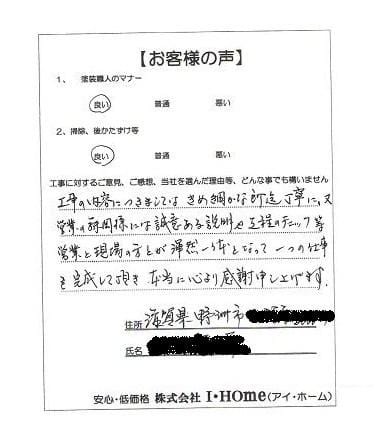 【お客様の声】
1、 塗装職人のマナー
良い 普通 悪い
2、掃除、後かたずけ等
良い 普通 悪い
工事に対するご意見、ご感想、当社を選んだ理由等、どんな事でも構いません
工事の内容につきましては きめ細かな所迄丁寧に、又
営業の 様には誠意ある説明や工程のチェック等
営業と現場の方とが渾然一体となって 一つの仕事
を完成して頂き 本当に心より感謝申し上げます。
住所 滋賀県野洲市
氏名
安心・低価格 株式会社 I・HOme(アイ・ホーム)